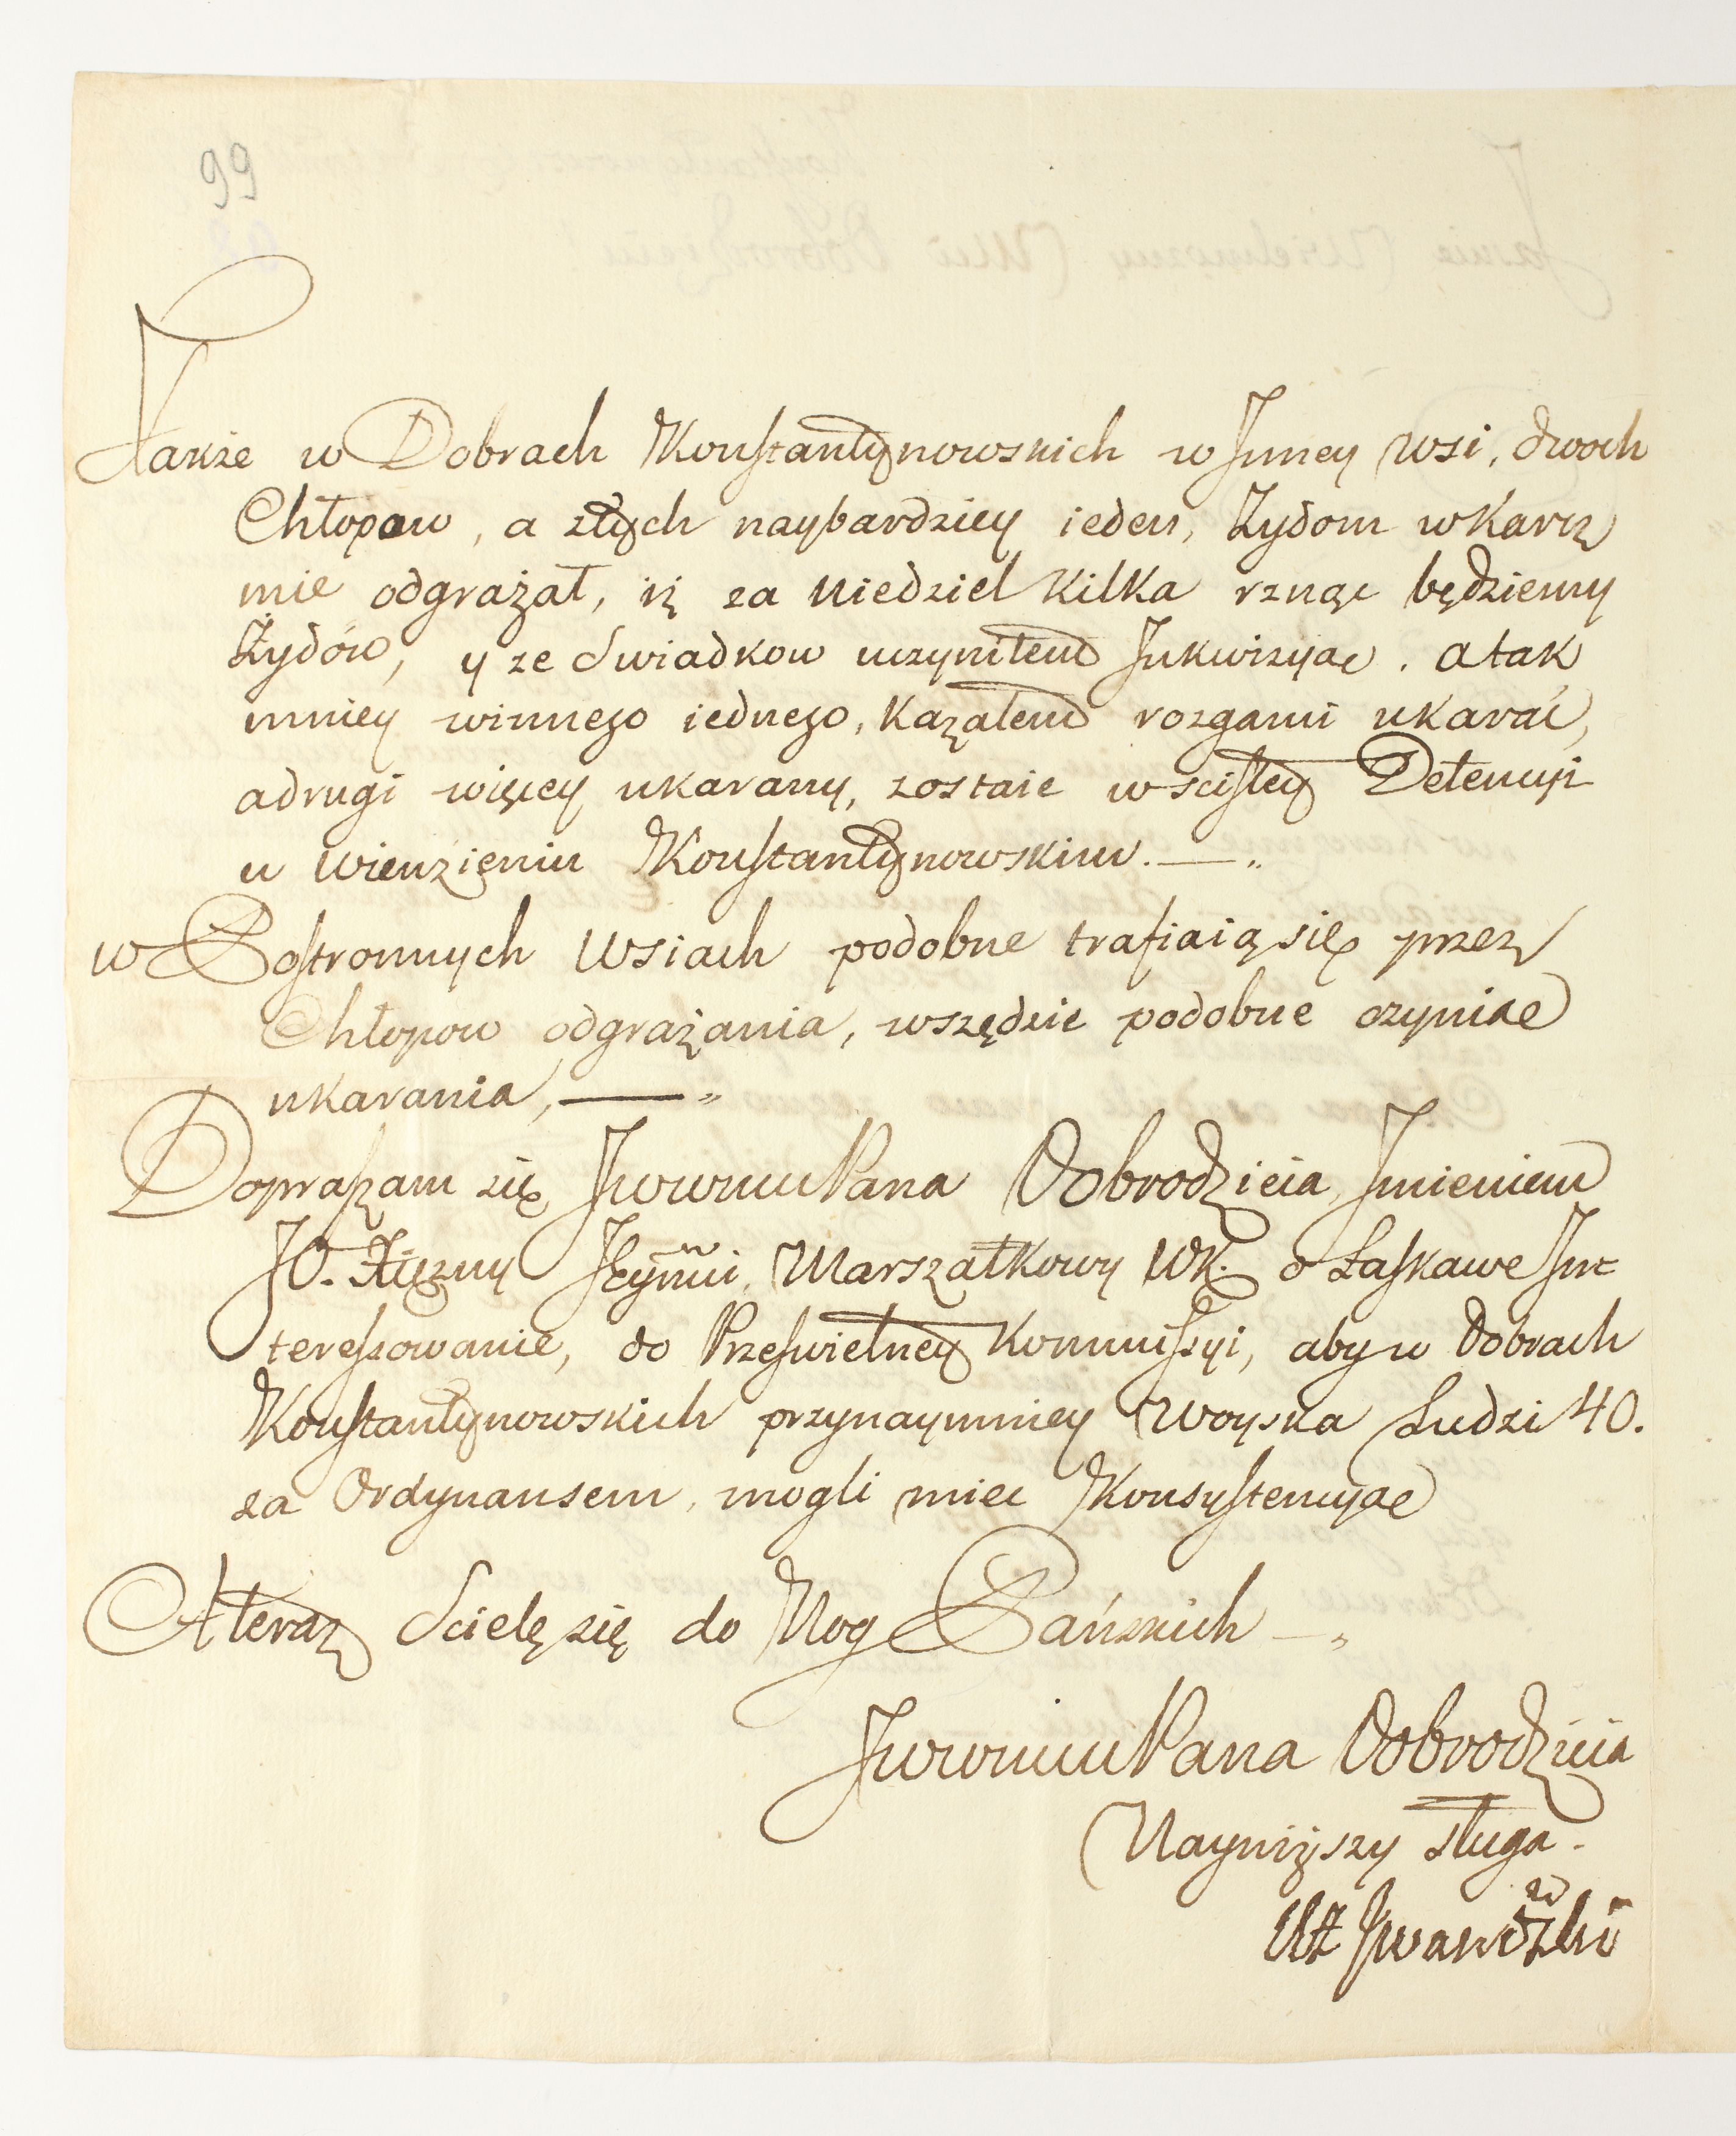 99
Także w Dobrach Konstantynowskich w Inney wsi, dwoch
Chłopow, a z tych naybardziey ieden, Żydom w Karcz
mie odgrażał, iż za Niedziel kilka rznąc będziemy
Żydów, y ze Swiadkow uczyniłem Inkwizycyą. a tak
mniey winnego iednego, kazałem rozgami ukarać,
a drugi więcey ukarany, zostaie w scisłey Detencyi
w Wienzieniu Konstantynowskim. —
w Postronnych Wsiach podobne trafiaią się przez
Chłopow odgrażania, wszędzie podobne czyniąc
ukarania, —
Dopraszam się JWWmMPana Dobrodzieia, Imieniem
JO. Xiężny Jeymci, Marszałkowy WK. o Łaskawe Jn=
teressowanie, do Prześwietney Kommissyi, aby w Dobrach
Konstantynowskich przynaymniey Woyska Ludzi 40.
za Ordynansem, mogli miec Konsystencyą
A teraz Scielę się do Nog Pańskich —
JWWmMPana Dobrodzieia
Nayniższy Sługa.
Iwanowski